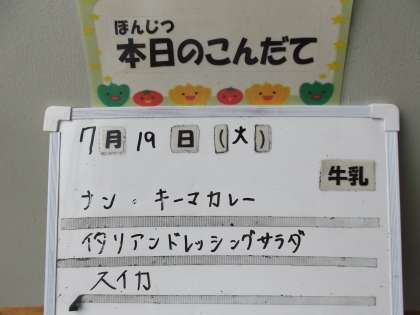 ほんじつ
本日のこんだて
7月19日(火)
牛乳
ナン・キーマカレー
イタリアンドレッシングサラダ
スイカ